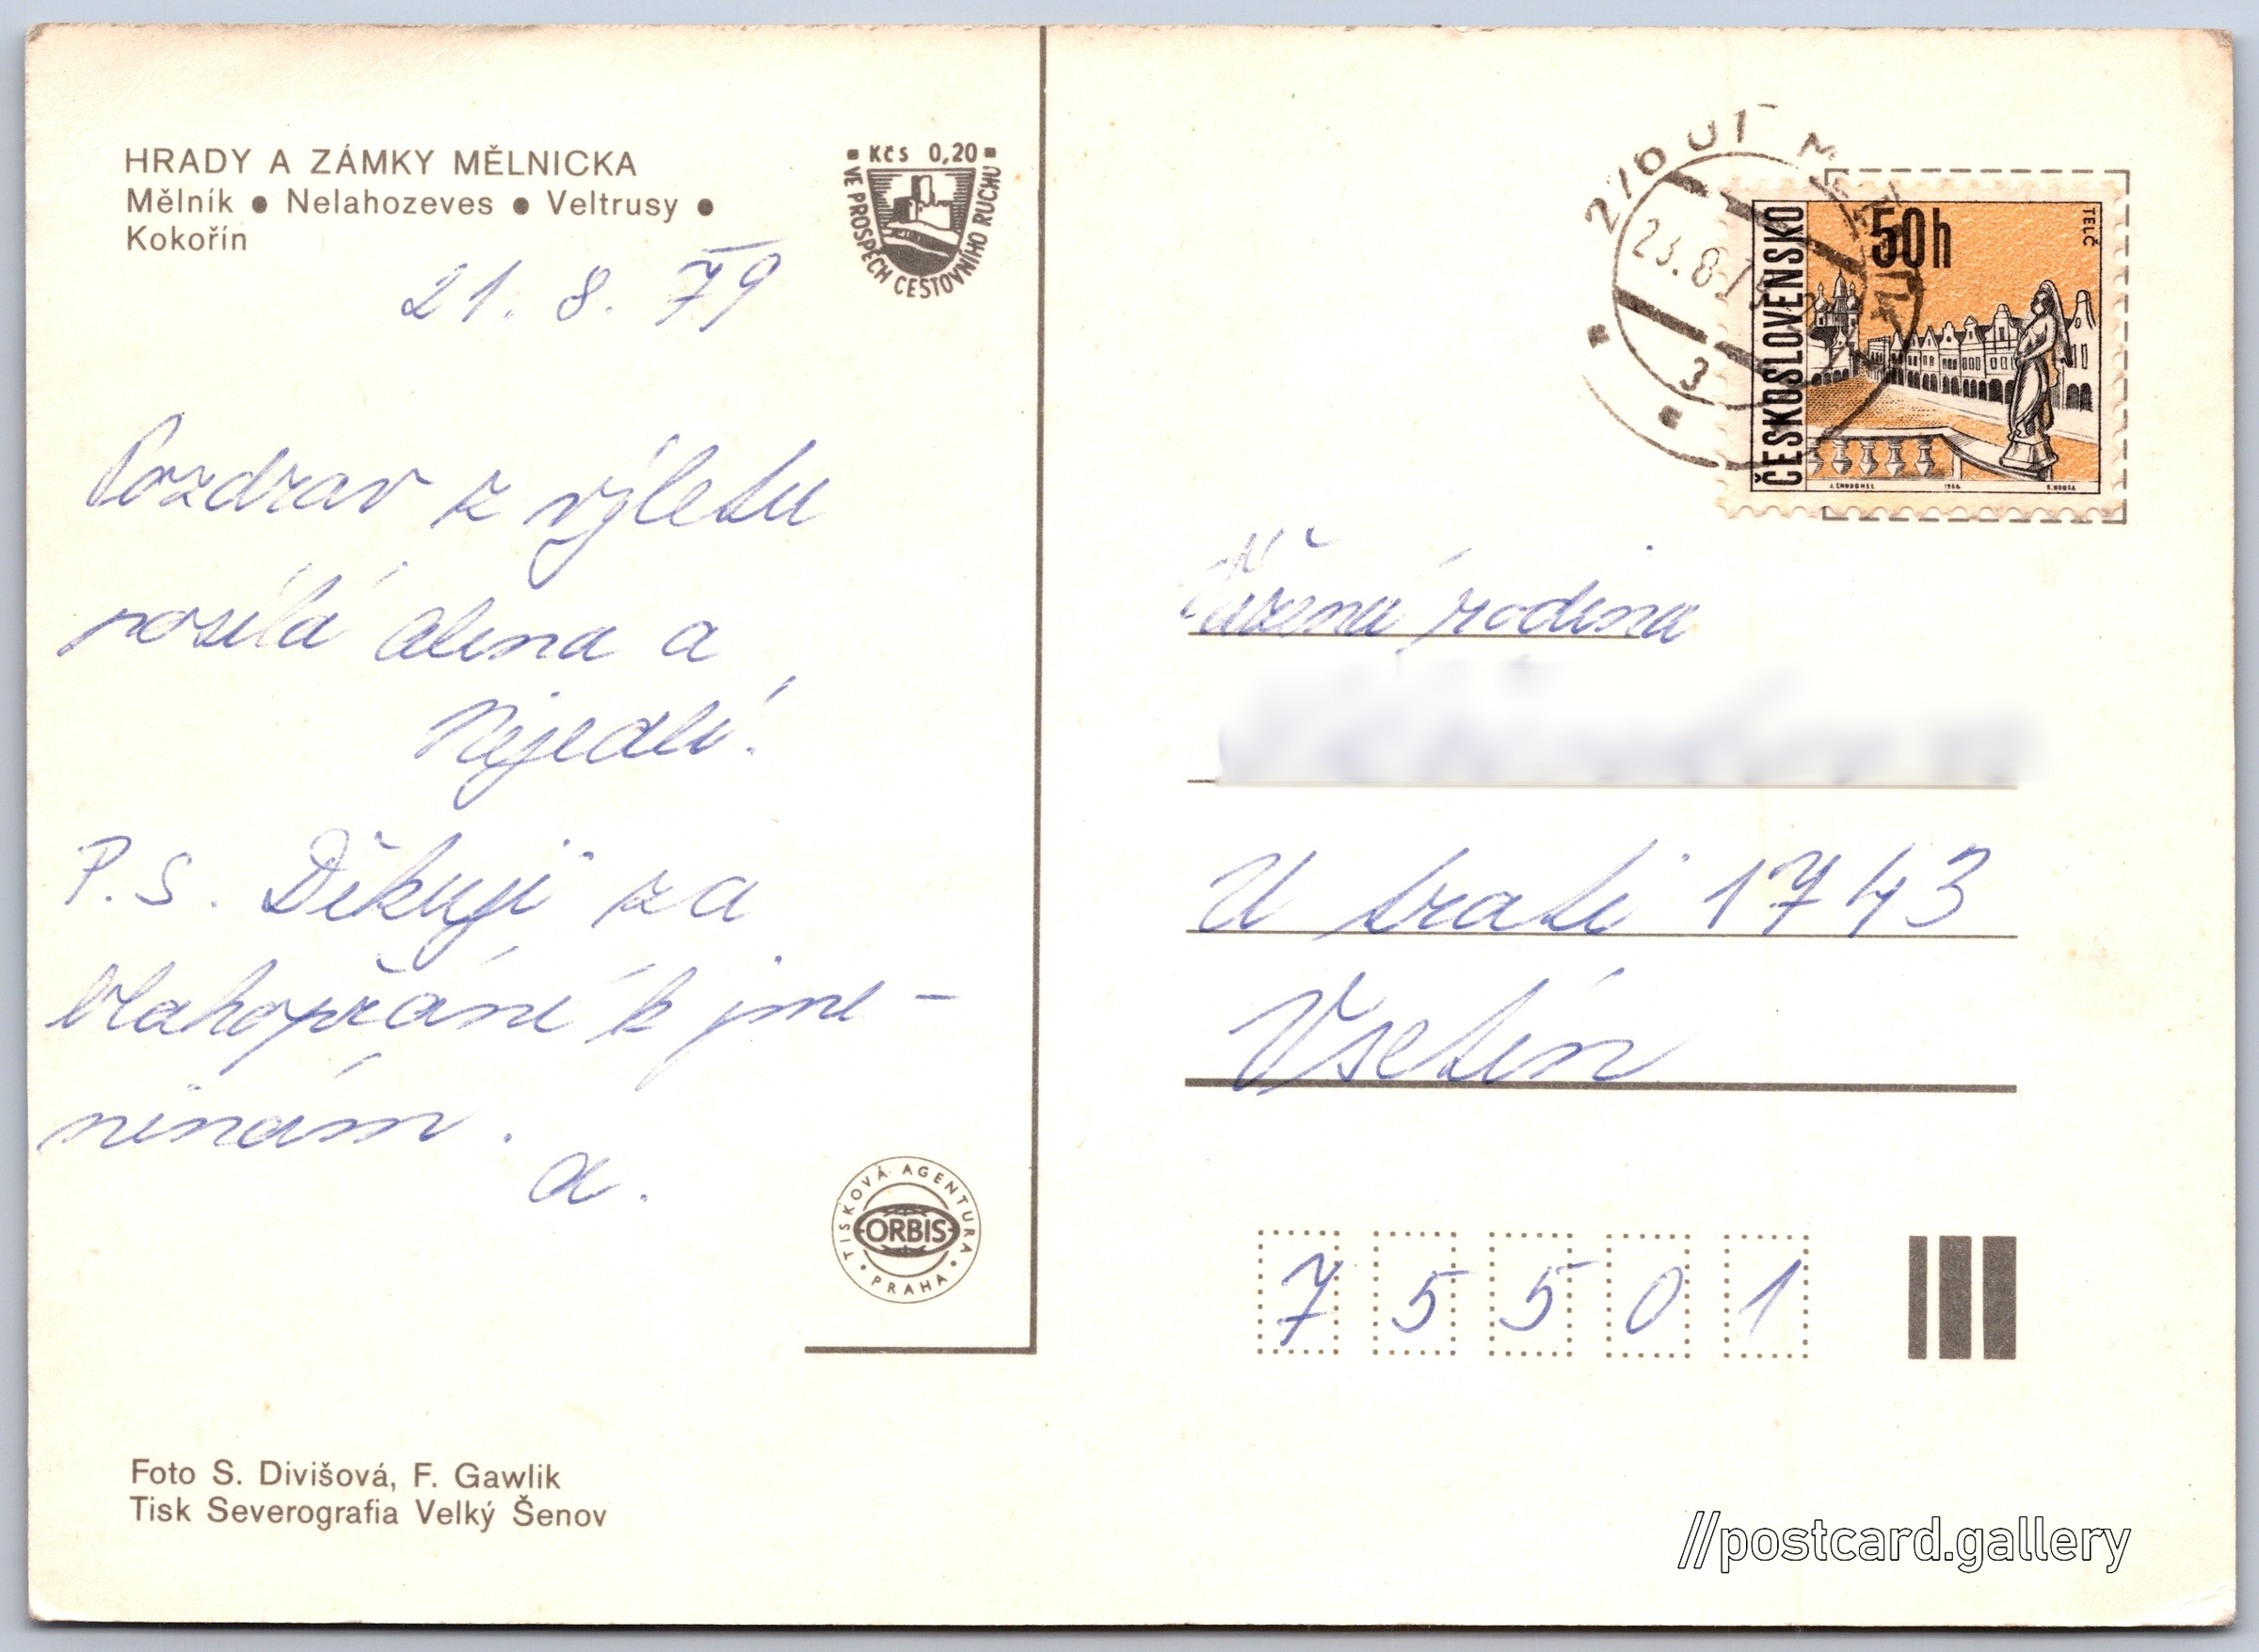 HRADY A ZÁMKY MĚLNICKA
Mělník ● Nelahozeves ● Veltrusy ●
Kokořín
Kčs 0,20
VE PROSPĚCH CESTOVNÍHO RUCHU
21. 8. 79
Pozdrav z výletu
posílá Alena a
Nejedlí.
P.S. Děkuji za
blahopřání k jme-
ninám.
A.
TISKOVÁ AGENTURA
ORBIS
PRAHA
Foto S. Divišová, F. Gawlik
Tisk Severografia Velký Šenov
276 01
23. 8. 79
3
ČESKOSLOVENSKO
50h
TELČ
1966
Vážená rodina
U trati 1743
Vsetín
7 5 5 0 1
//postcard.gallery